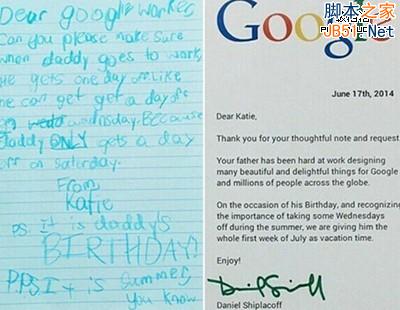 Dear google worker,
Can you please make sure
when daddy goes to work,
he gets one day off. Like
he can get get a day off
on wednesday. Because
daddy ONLY gets a day
off on saturday.
From,
Katie
P.S. It is daddy's
BIRTHDAY!
P.P.S. It is summer,
you know
Google
脚本之家
JB51.Net
June 17th, 2014
Dear Katie,
Thank you for your thoughtful note and request.
Your father has been hard at work designing
many beautiful and delightful things for Google
and millions of people across the globe.
On the occasion of his Birthday, and recognizing
the importance of taking some Wednesdays
off during the summer, we are giving him the
whole first week of July as vacation time.
Enjoy!
Daniel Shiplacoff